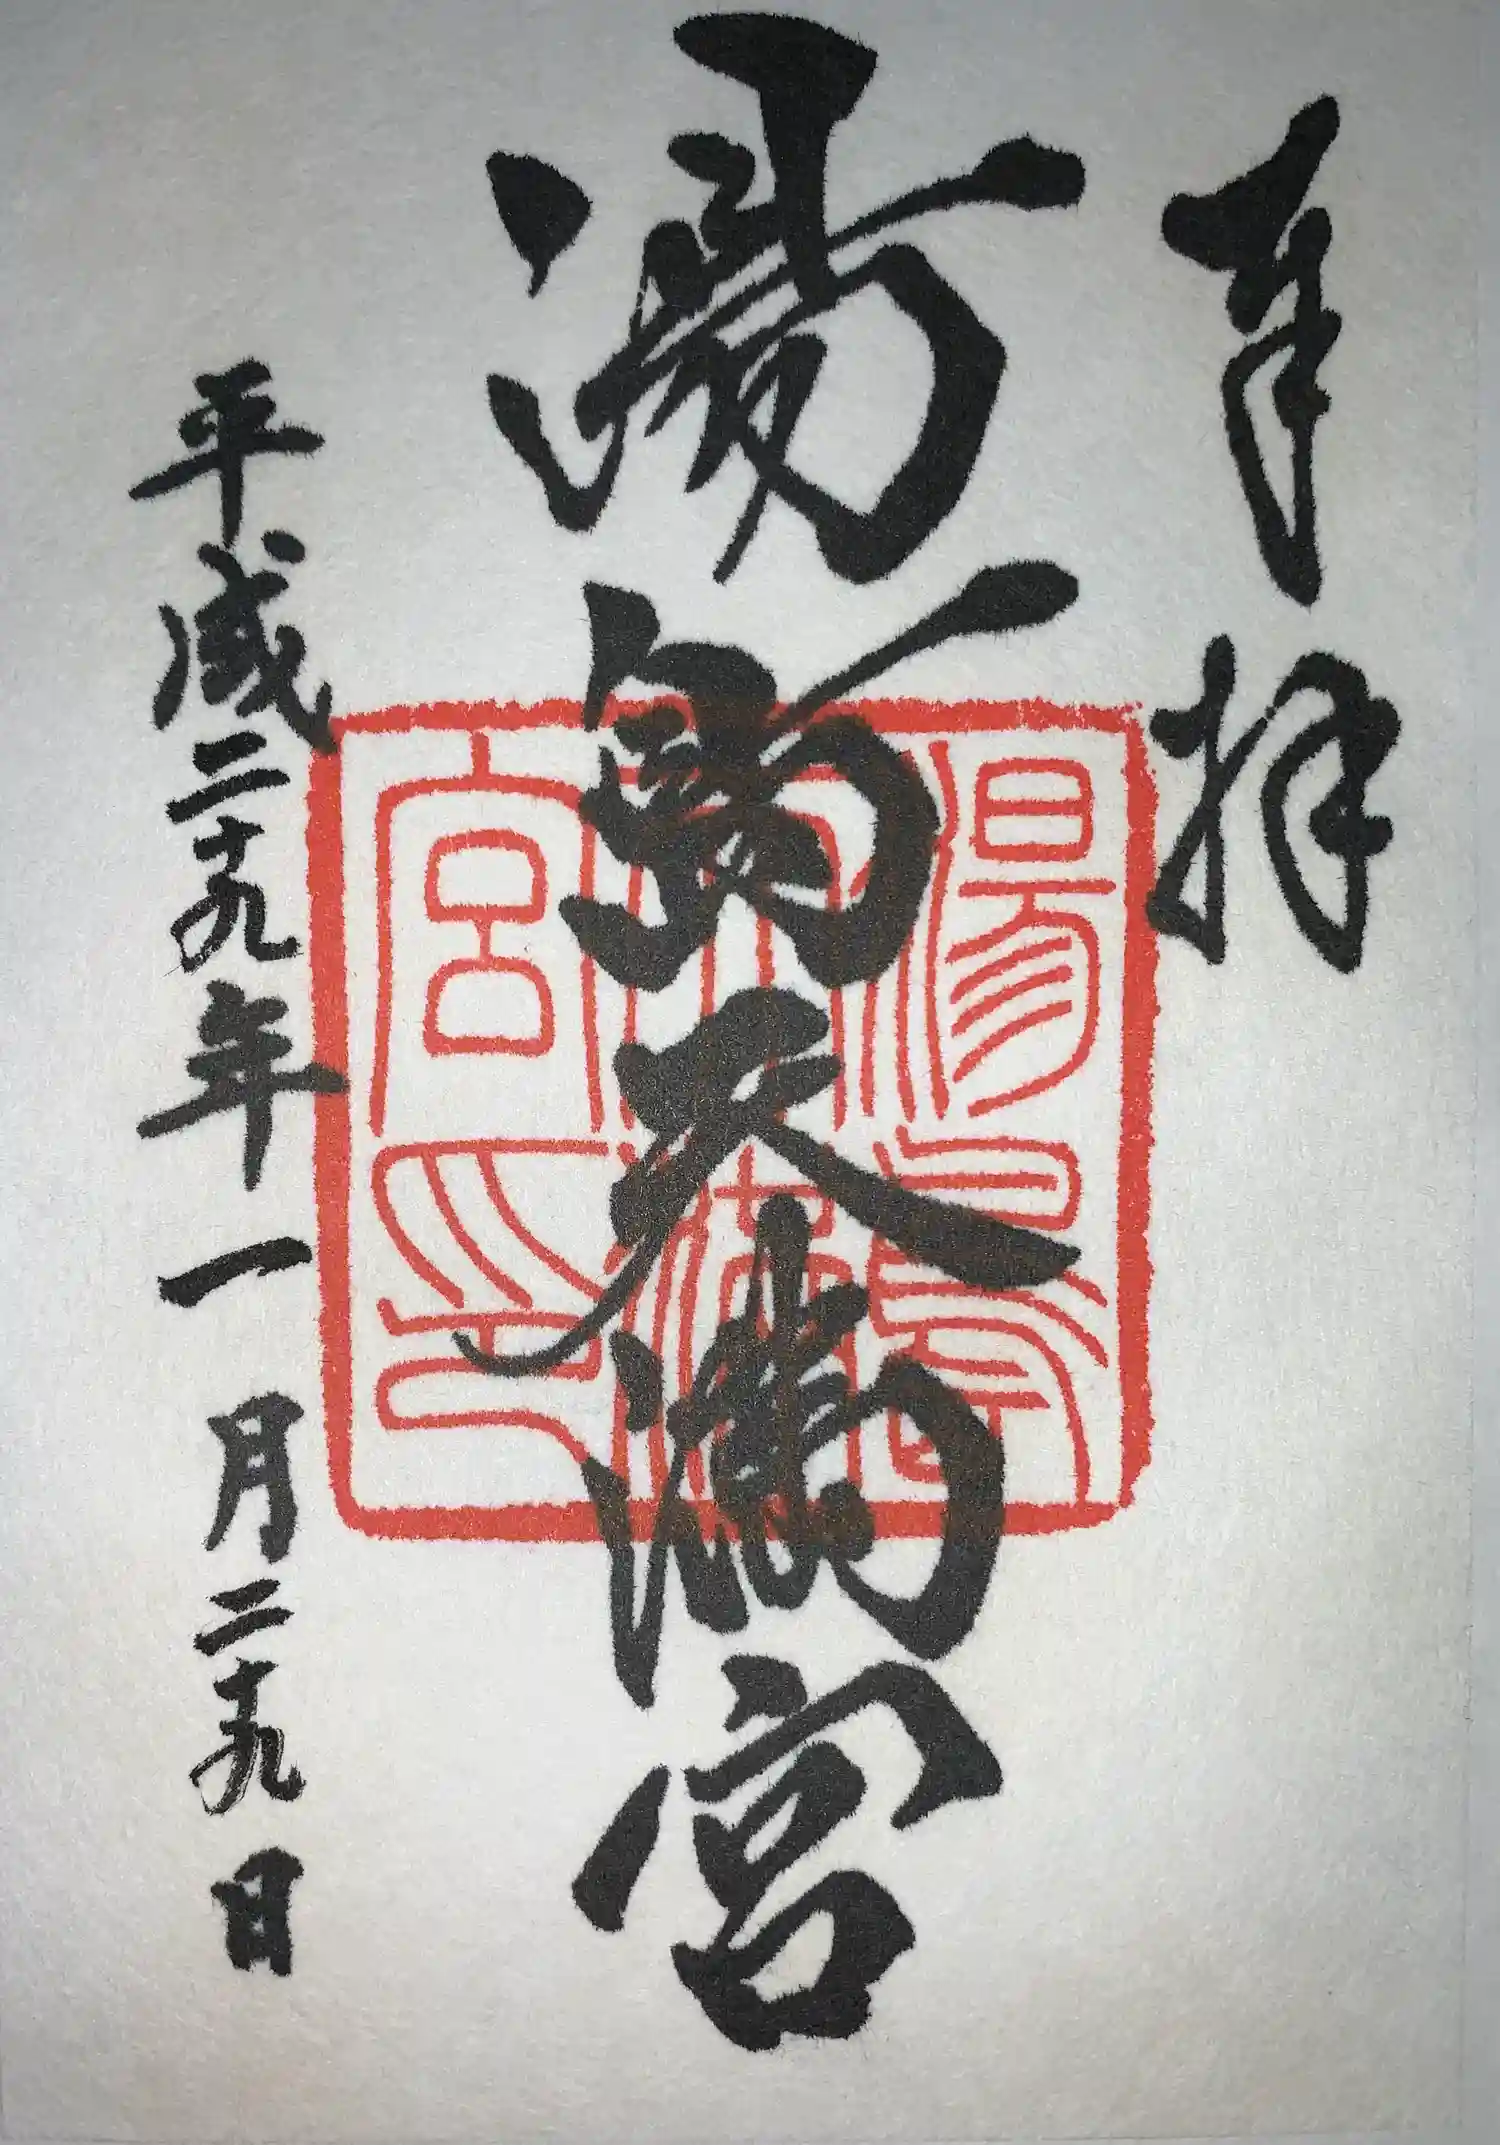 奉拝
湯島天満宮
平成二十九年一月二十九日
湯島
天満
宮印